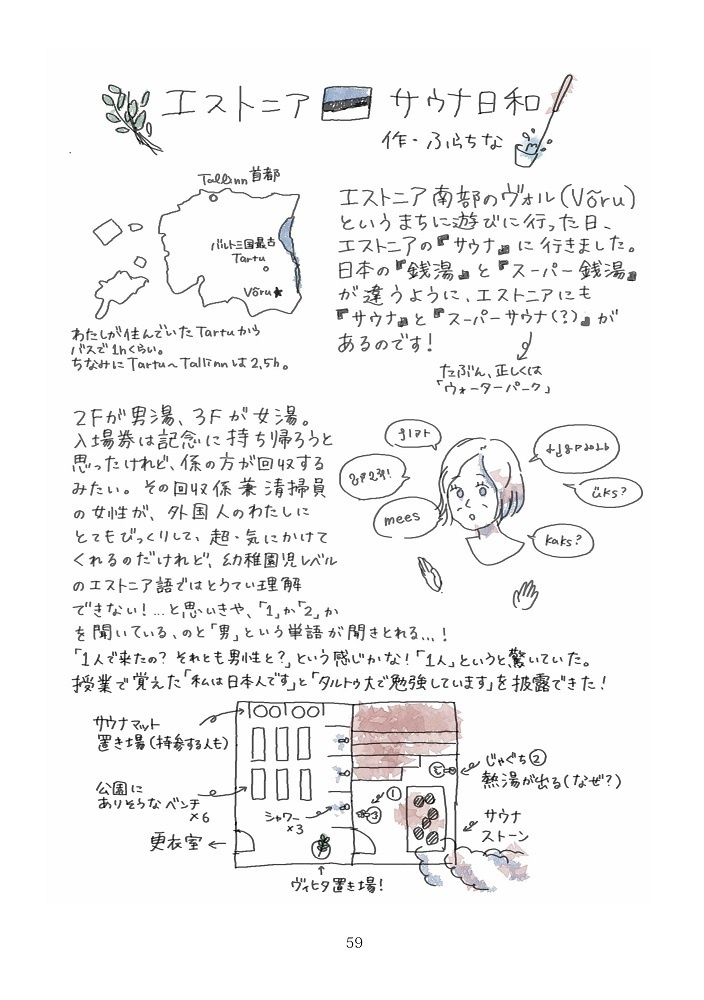 エストニア サウナ日和
作・ふらちな
Tallinn 首都
バルト三国最古
Tartu
Võru★
わたしが住んでいたTartuから
バスで1hくらい。
ちなみにTartu〜Tallinnは2,5h。
エストニア南部のヴォル(Võru)
というまちに遊びに行った日、
エストニアの『サウナ』に行きました。
日本の『銭湯』と『スーパー銭湯』
が違うように、エストニアにも
『サウナ』と『スーパーサウナ(?)』が
あるのです!
たぶん、正しくは
「ウォーターパーク」
2Fが男湯、3Fが女湯。
入場券は記念に持ち帰ろうと
思ったけれど、係の方が回収する
みたい。その回収係兼清掃員
の女性が、外国人のわたしに
とてもびっくりして、超・気にかけて
くれるのだけれど、幼稚園児レベル
のエストニア語ではとうてい理解
できない!…と思いきや、「1」か「2」か
を聞いている、のと「男」という単語が聞きとれる…!
「1人で来たの?それとも男性と?」という感じかな!「1人」というと驚いていた。
授業で覚えた「私は日本人です」と「タルトゥ大で勉強しています」を披露できた!
mees
üks?
kaks?
サウナマット
置き場(持参する人も)
公園に
ありそうなベンチ
×6
更衣室
シャワー
×3
ヴィヒタ置き場!
①
じゃぐち②
熱湯が出る(なぜ?)
サウナ
ストーン
59